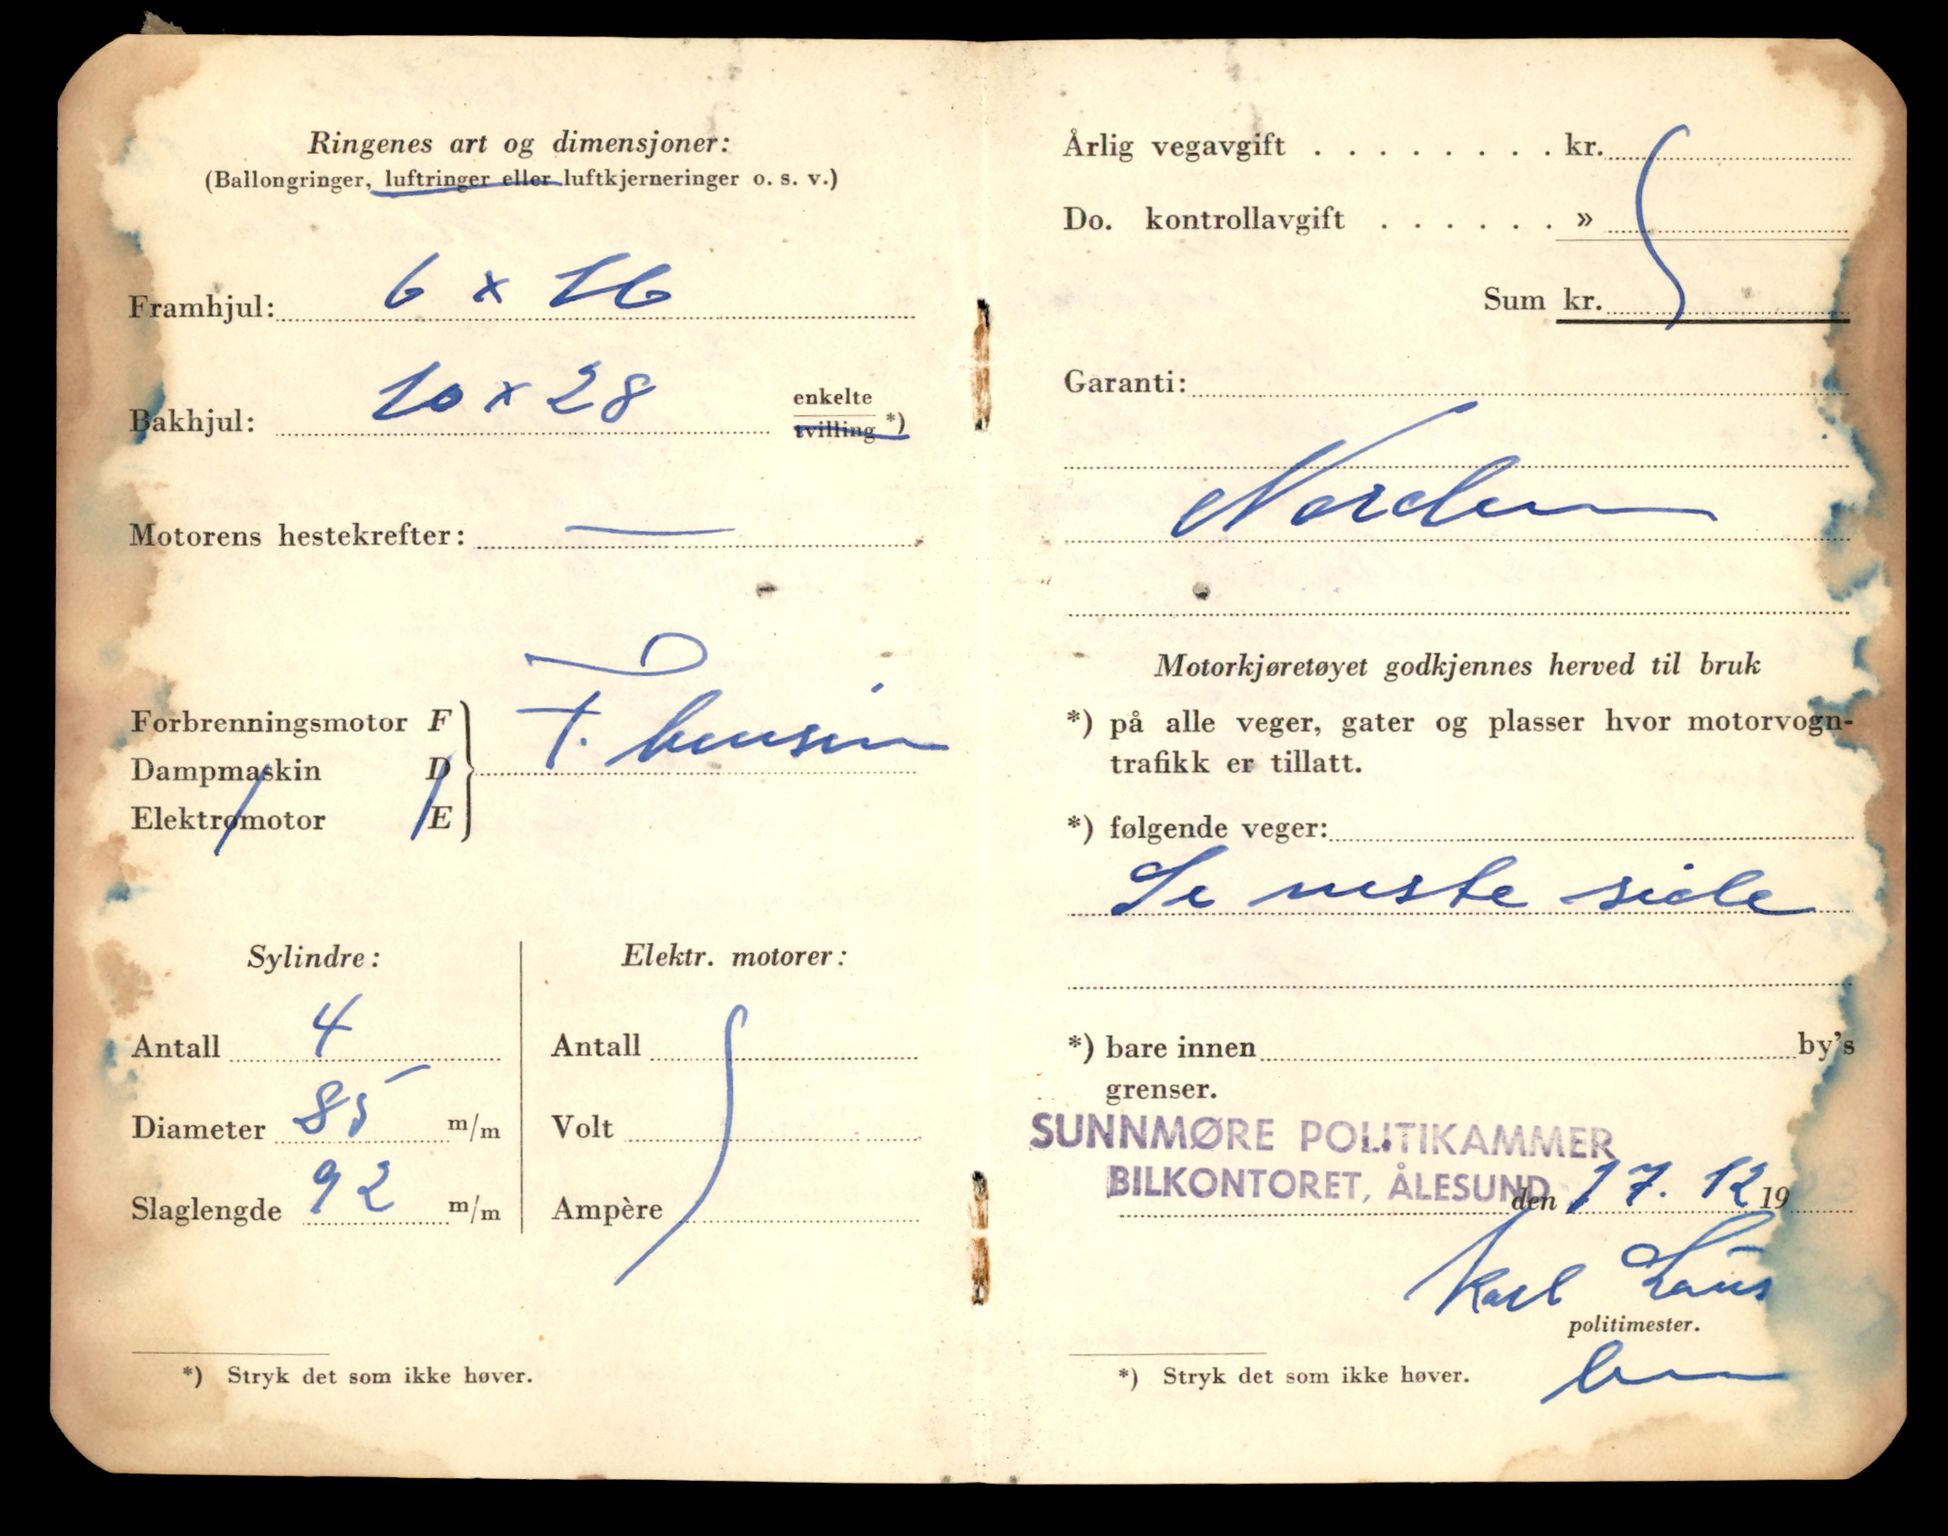 Ringenes art og dimensjoner:
(Ballongringer, luftringer eller luftkjerneringer o. s. v.)
Framhjul: 6 x 16
Bakhjul: 10 x 28 enkelte
tvilling *)
Motorens hestekrefter: —
Forbrenningsmotor F
F. bensin
Dampmaskin D
Elektromotor E
Sylindre:
Antall 4
Diameter 85 m/m
Slaglengde 92 m/m
Elektr. motorer:
Antall
Volt
Ampère
*) Stryk det som ikke høver.
Årlig vegavgift . . . . . . . . kr.
Do. kontrollavgift . . . . . . »
Sum kr.
Garanti:
Norden
Motorkjøretøyet godkjennes herved til bruk
*) på alle veger, gater og plasser hvor motorvogn-
trafikk er tillatt.
*) følgende veger:
Se neste side
*) bare innen by's
grenser.
SUNNMØRE POLITIKAMMER
BILKONTORET, ÅLESUND
den 17. 12 19
Karl
politimester.
*) Stryk det som ikke høver.